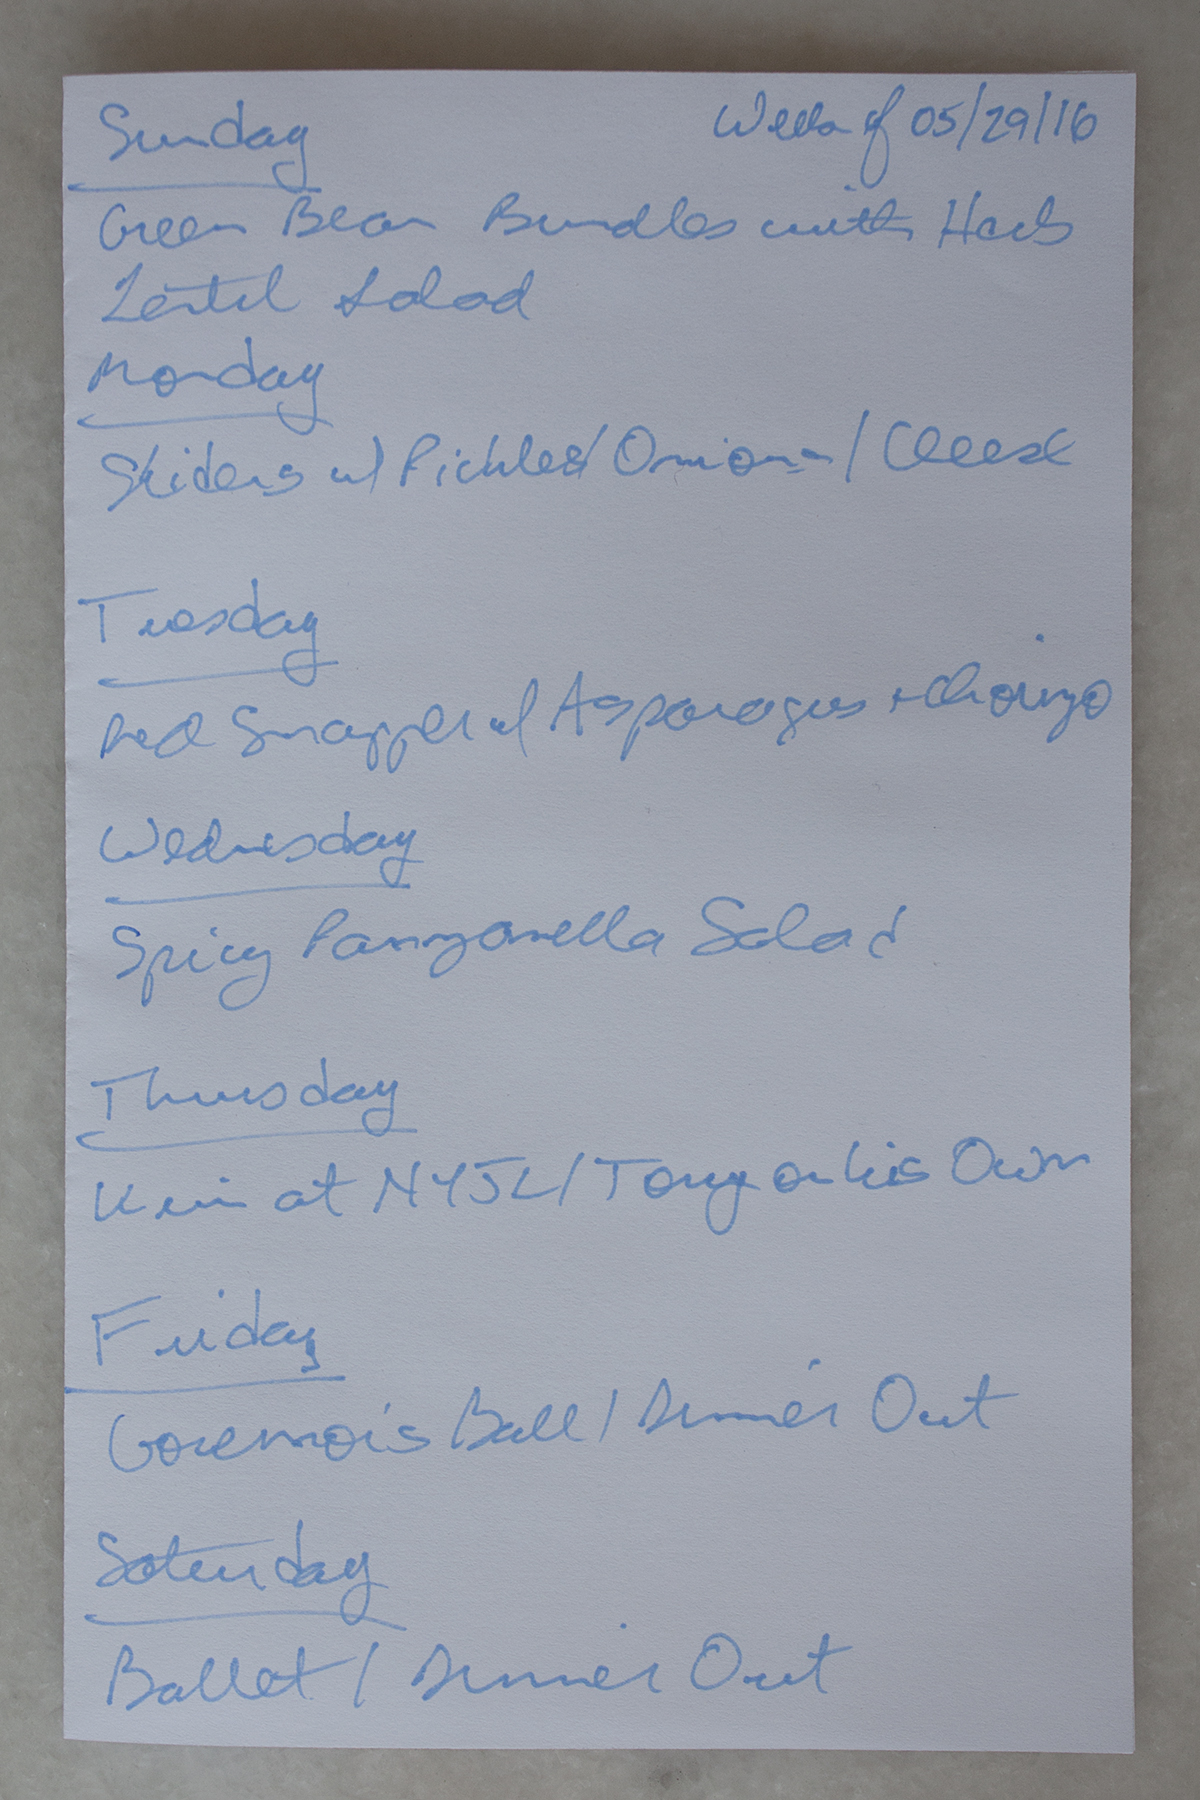 Sunday Week of 05/29/16
Green Bean Bundles with Herb
Lentil Salad
Monday
Sliders w/ Pickles/ Onions / Cheese
Tuesday
Red Snapper w/ Asparagus + Chorizo
Wednesday
Spicy Panzanella Salad
Thursday
at NYJL / Tony on his Own
Friday
Governor's Ball / Dinner Out
Saturday
Ballet / Dinner Out